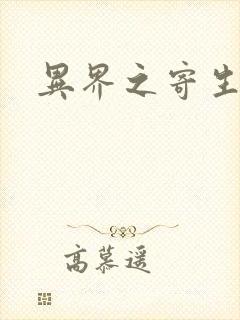 異界之寄生
高慕遥